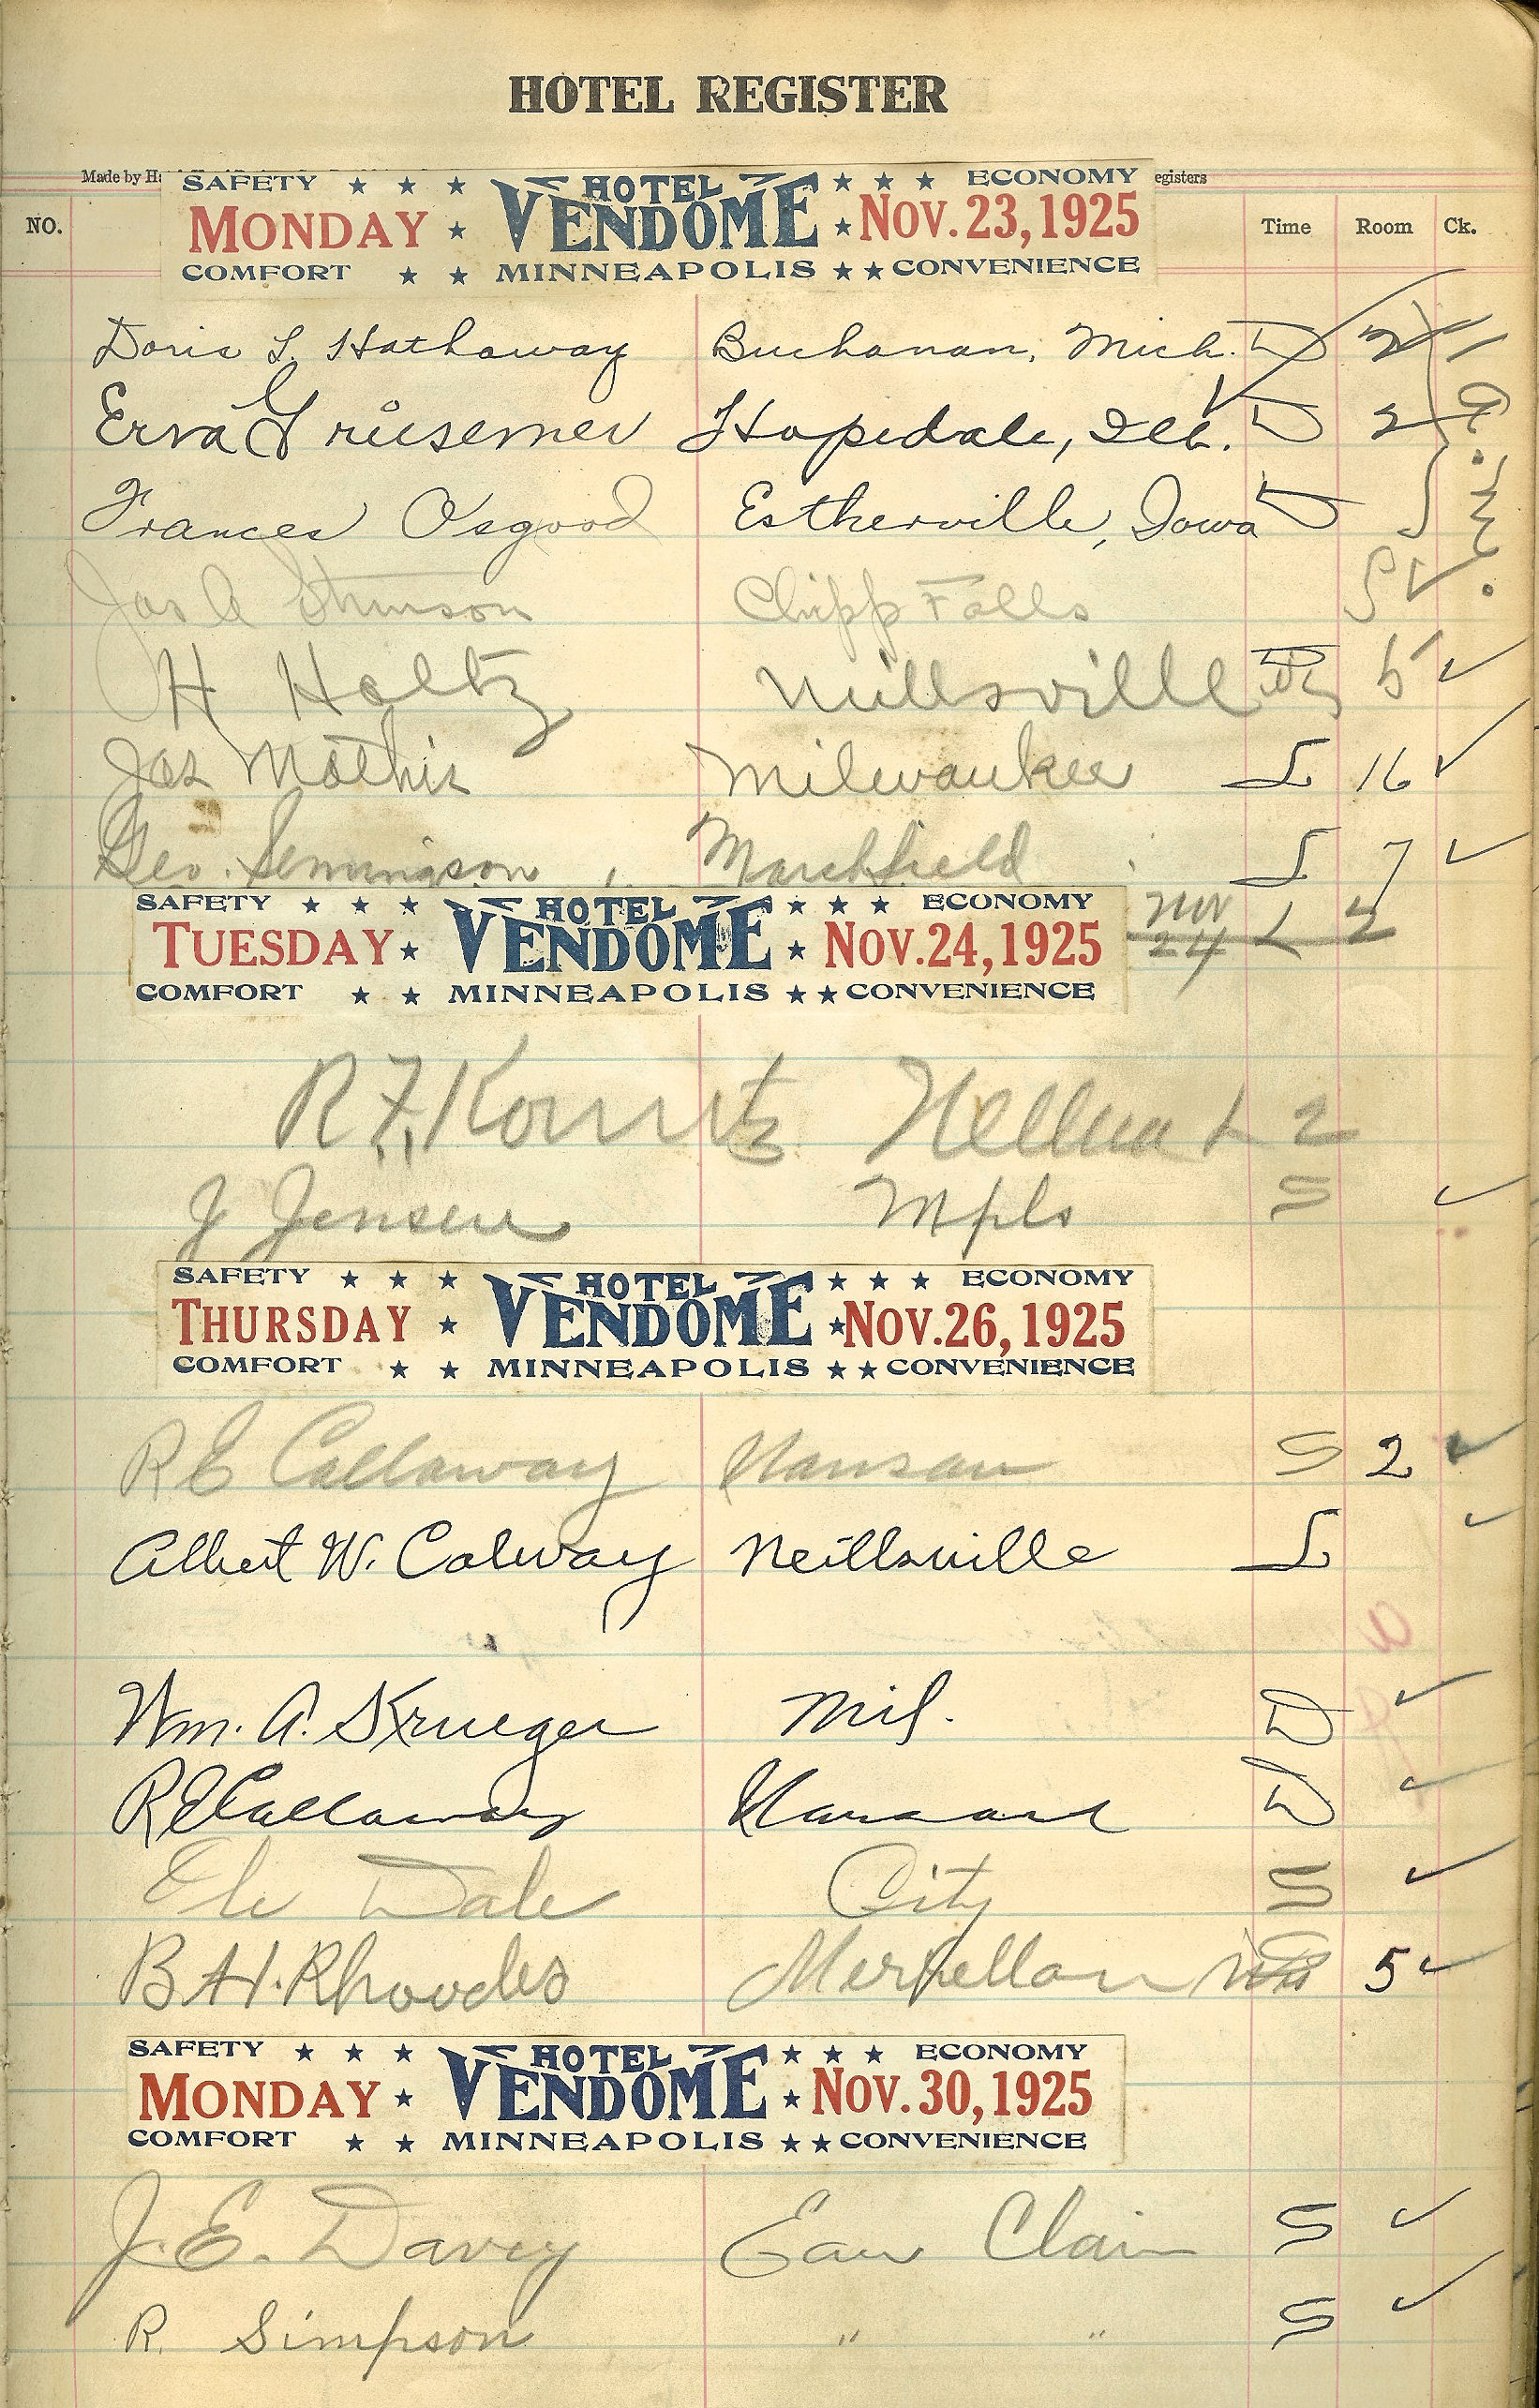 HOTEL REGISTER
Made by Ha egisters
SAFETY ★ ★ ★ HOTEL ★ ★ ★ ECONOMY
MONDAY ★ VENDOME ★ NOV. 23, 1925
COMFORT ★ ★ MINNEAPOLIS ★ ★ CONVENIENCE
NO. Time Room Ck.
Doris L. Hathaway Buchanan, Mich. D 2
Erva Griesemer Hopedale, Ill. D 2
Frances Osgood Estherville, Iowa D
Jas A Stinson Chipp Falls
H Holtz Nillsville 5 ✓
Jas Mathis Milwaukee L 16 ✓
Geo. Marshfield L 7 ✓
SAFETY ★ ★ ★ HOTEL ★ ★ ★ ECONOMY
TUESDAY ★ VENDOME ★ NOV. 24, 1925 Nov 24 L 2
COMFORT ★ ★ MINNEAPOLIS ★ ★ CONVENIENCE
R. F. L 2
J Jensen Mpls S ✓
SAFETY ★ ★ ★ HOTEL ★ ★ ★ ECONOMY
THURSDAY ★ VENDOME ★ NOV. 26, 1925
COMFORT ★ ★ MINNEAPOLIS ★ ★ CONVENIENCE
R E Callaway Wausau S 2 ✓
Albert W. Calway Neillsville L ✓
Wm. A. Krueger Mil. D ✓
R E Callaway D ✓
Dale City S ✓
B. H. Rhoades Merrellan 5 ✓
SAFETY ★ ★ ★ HOTEL ★ ★ ★ ECONOMY
MONDAY ★ VENDOME ★ NOV. 30, 1925
COMFORT ★ ★ MINNEAPOLIS ★ ★ CONVENIENCE
J. E. Davey Eau Clair S ✓
R. Simpson " " S ✓